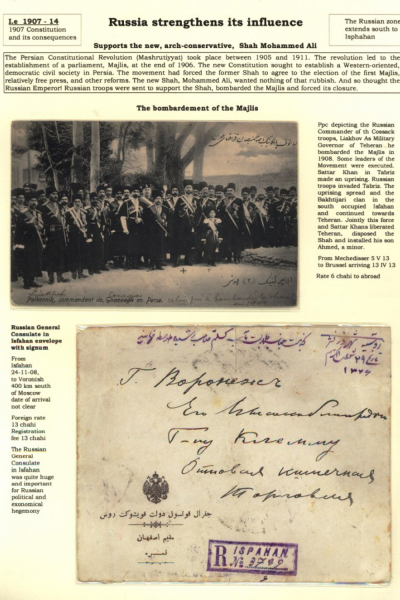 I.e 1907 - 14
1907 Constitution
and its consequences
Russia strengthens its influence
The Russian zone
extends south to
Isphahan
Supports the new, arch-conservative, Shah Mohammed Ali
The Persian Constitutional Revolution (Mashrutiyyat) took place between 1905 and 1911. The revolution led to the
establishment of a parliament, Majlis, at the end of 1906. The new Constitution sought to establish a Western-oriented,
democratic civil society in Persia. The movement had forced the former Shah to agree to the election of the first Majlis,
relatively free press, and other reforms. The new Shah, Mohammed Ali, wanted nothing of that rubbish. And so thought the
Russian Emperor! Russian troops were sent to support the Shah, bombarded the Majlis and forced its closure.
The bombardement of the Majlis
Ppc depicting the Russian
Commander of th Cossack
troops, Liakhov As Military
Governor of Teheran he
bombarded the Majlis in
1908. Some leaders of the
Movement were executed.
Sattar Khan in Tabriz
made an uprising. Russian
troops invaded Tabriz. The
uprising spread and the
Bakhtijari clan in the
south occupied Isfahan
and continued towards
Teheran. Jointly this force
and Sattar Khans liberated
Teheran, disposed the
Shah and installed his son
Ahmed, a minor.
From Mechedisser 5 V 13
to Brussel arriving 13 IV 13
Rate 6 chahi to abroad
Polkovnik, commandant de
en Perse.
Russian General
Consulate in
Isfahan envelope
with signum
From
Isfahan
24-11-08,
to Voronish
400 km south
of Moscow
date of arrival
not clear
Foreign rate
13 chahi
Registration
fee 13 chahi
The Russian
General
Consulate
in Isfahan
was quite huge
and important
for Russian
political and
exonomical
hegemony
Г. Воронеж
Его
Г-ну
Торговля
جنرال قونسول دولت قویشوکت روس
مقیم اصفهان
نمره
R ISPAHAN
№ 3789